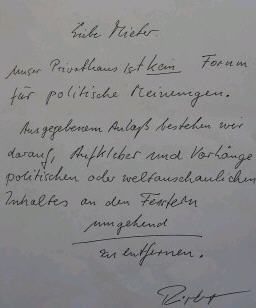 Mieter.
unser Privathaus ist kein Forum
für politische Meinungen.
Ausgegebenem Anlaß bestehen wir
darauf, Aufkleber und Vorhänge
politischen oder weltanschaulichen
Inhaltes an den Fenstern
umgehend
zu entfernen.